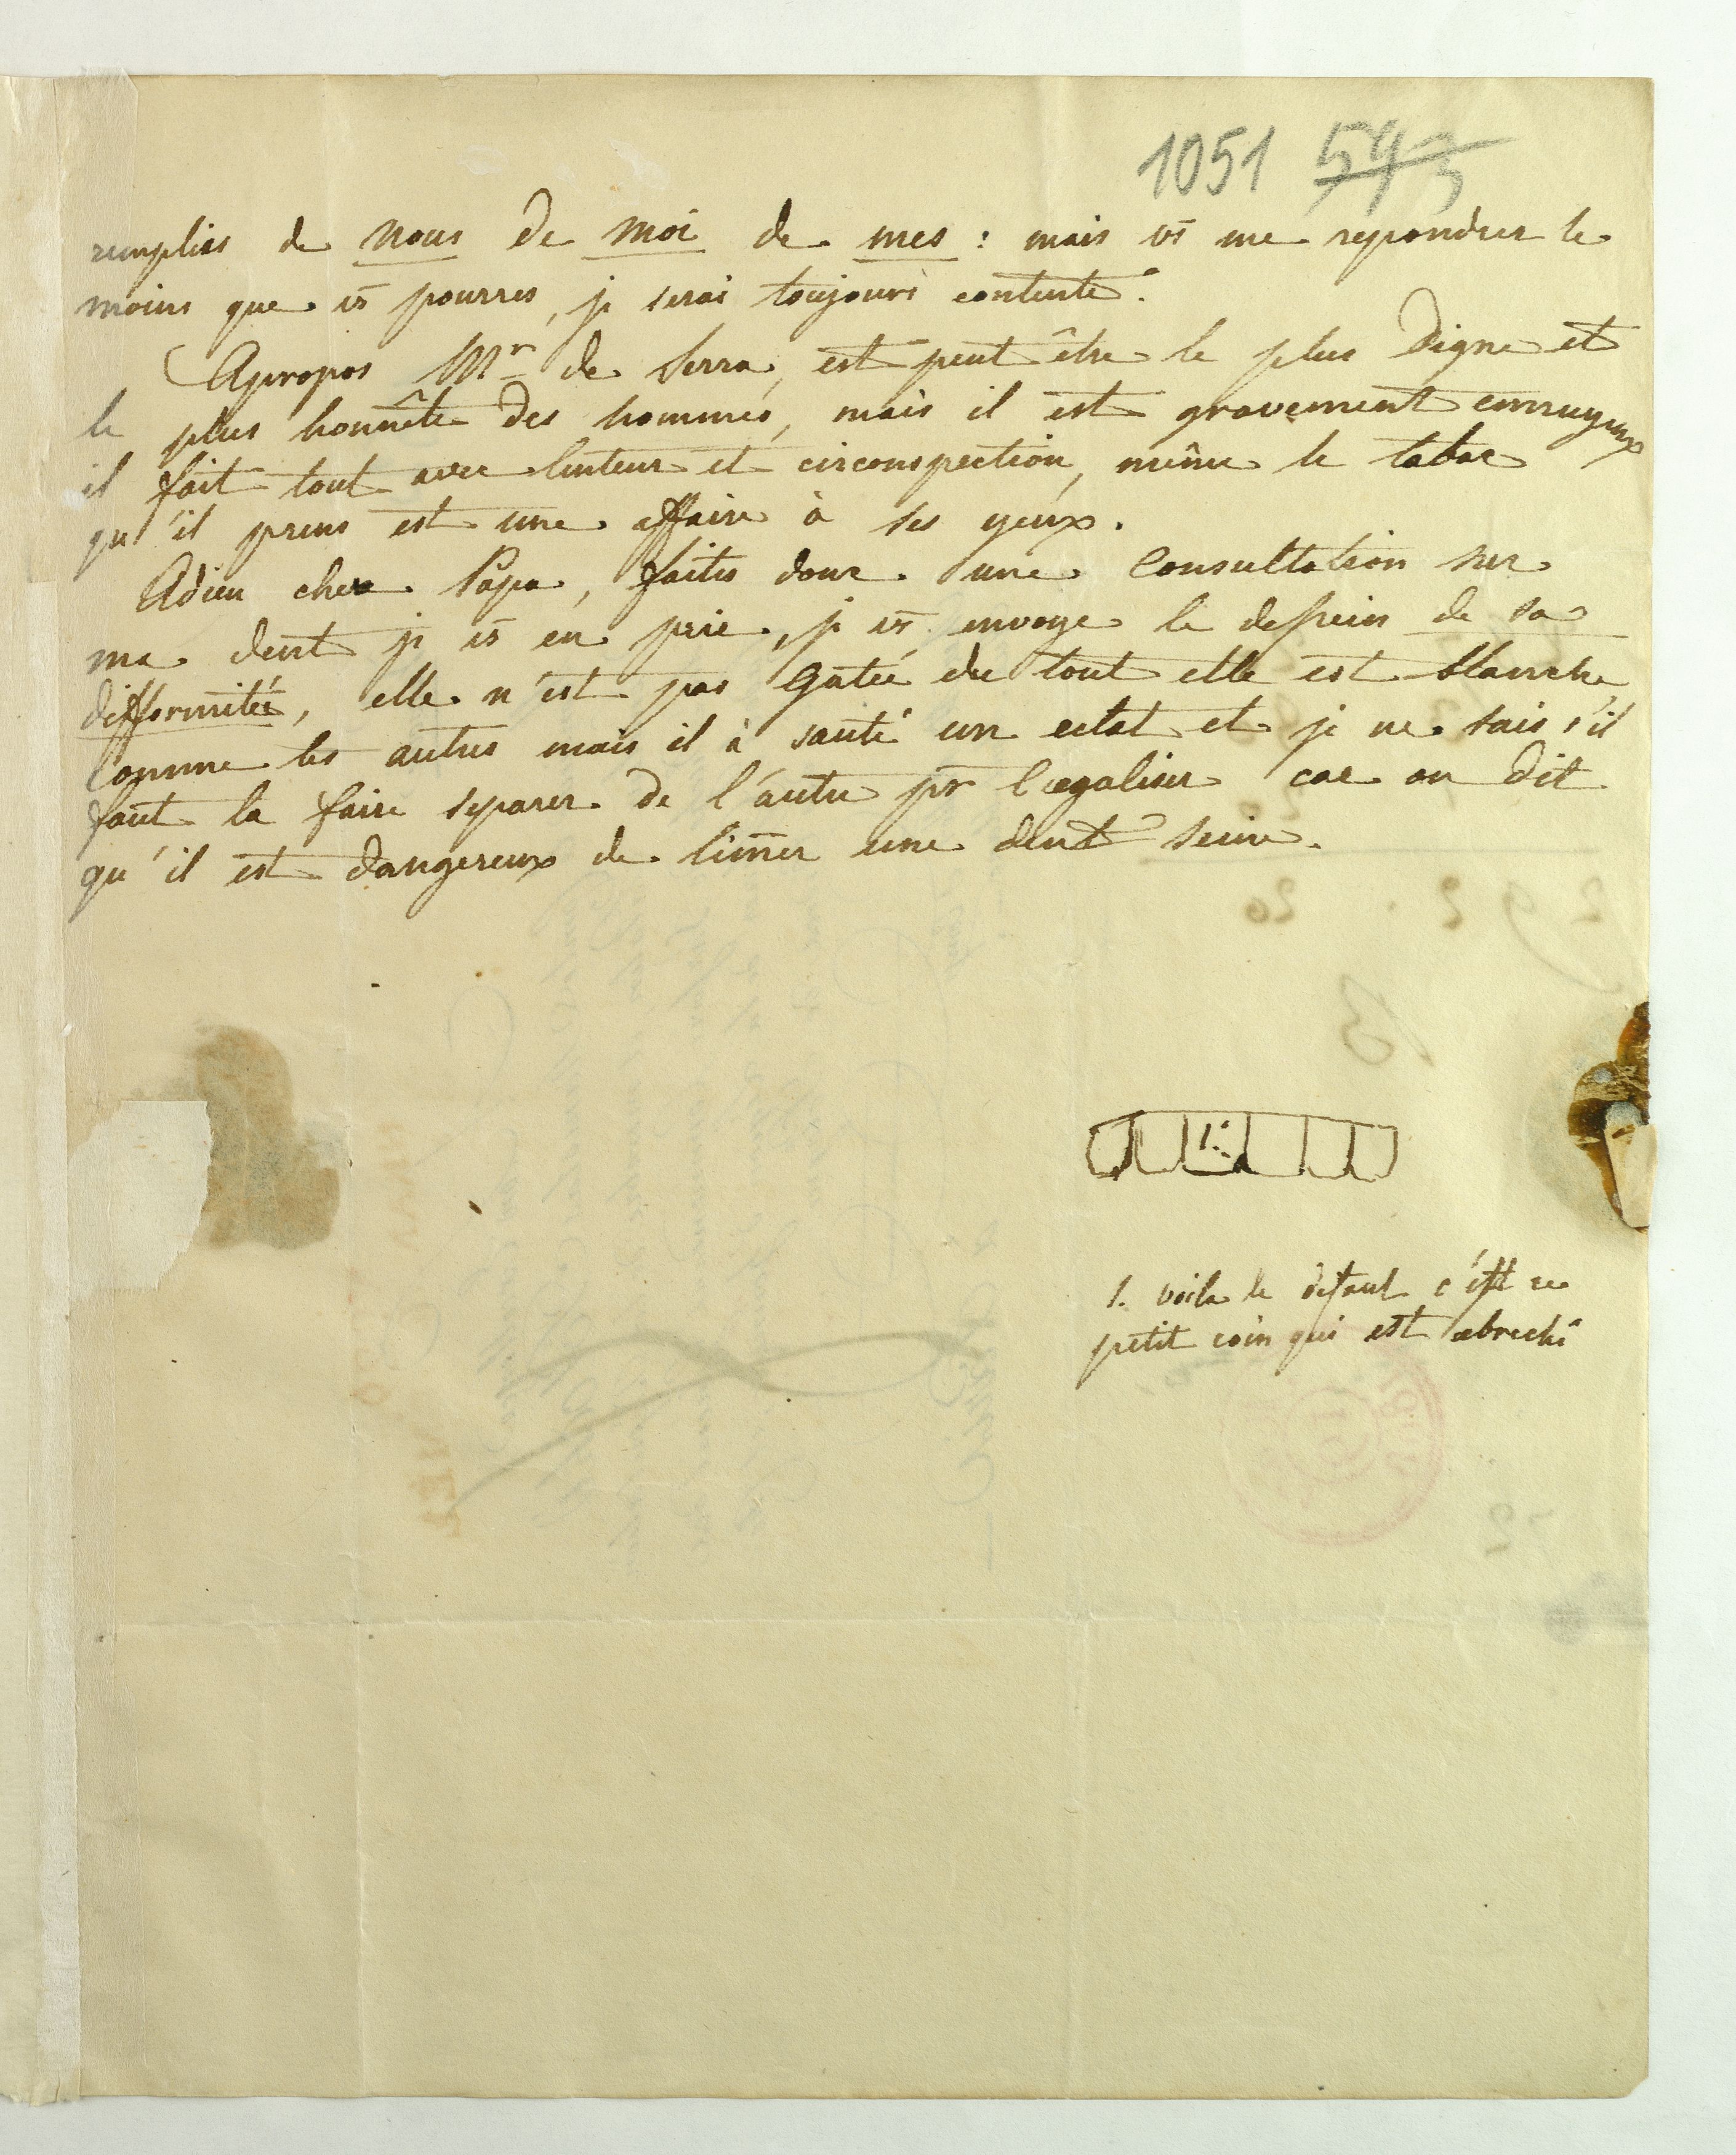 1051 543
remplies de nous de moi de mes : mais vs me repondres le
moins que vs pourres, je serai toujours contente.
Apropos Mr de Serra, est peut être le plus digne et
le plus honnête des hommes, mais il est gravement ennuyeux
il fait tout avec lenteur et circonspection, même le tabac
qu'il prens est une affaire à ses yeux.
Adieu cher Papa, faites donc une Consultation sur
ma dent je vs en prie, je vs envoye le dessein de sa
difformitée, elle n'est pas gatée du tout elle est blanche
comme les autres mais il à sauté un eclat et je ne sais s'il
faut la faire separer de l'autre pr l'egaliser car on dit
qu'il est dangereux de limer une dent seine.
1.
1. voila le defaut c'est ce
petit coin qui est ebreché